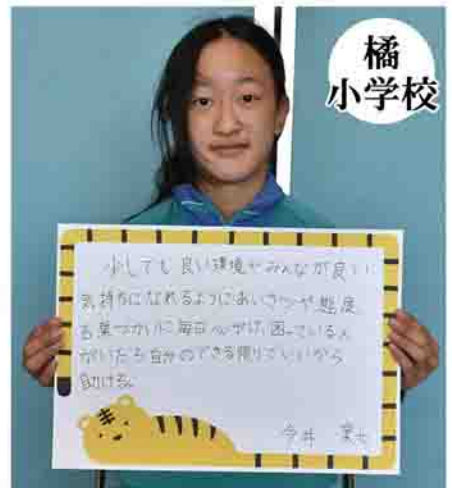 橘
小学校
少しでも良い環境やみんなが良い
気持ちになれるようにあいさつや態度
言葉づかいに毎日心がけ、困っている人
がいたら自分のできる限りでいいから
助ける。
今井